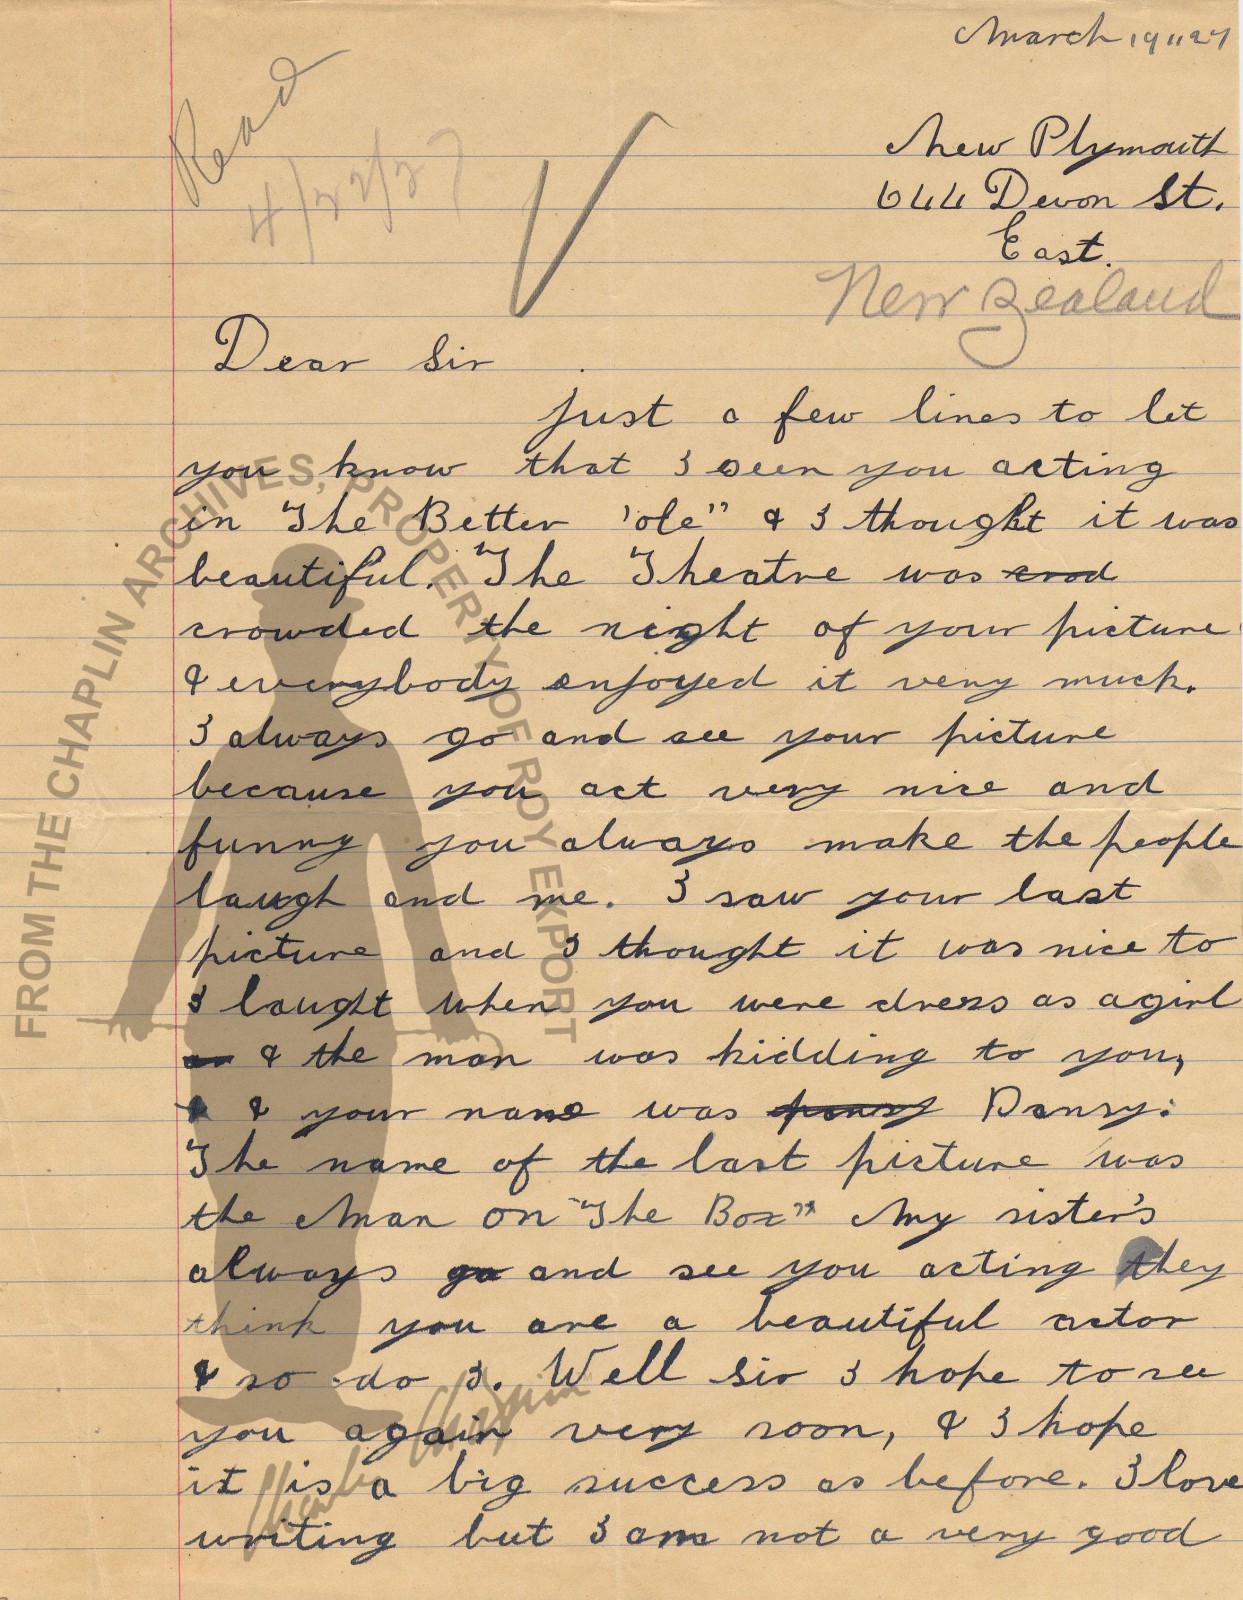 March 19 1127
Read
4/22/27
New Plymouth
644 Devon St.
East.
New Zealand
Dear Sir
just a few lines to let
you know that I seen you acting
in "The Better 'ole" & I thought it was
beautiful. "The Theatre was crod
crowded the night of your picture
& everybody enjoyed it very much.
I always go and see your picture
because you act very nice and
funny you always make the people
laugh and me. I saw your last
picture and I thought it was nice to
I laught when you were dress as a girl
& the man was kidding to you,
& your name was pansy Pansy.
The name of the last picture was
the Man on "The Box" My sister's
always go and see you acting they
think you are a beautiful actor
& so do I. Well Sir I hope to see
you again very soon, & I hope
it is a big success as before. I love
writing but I am not a very good
FROM THE CHAPLIN ARCHIVES, PROPERTY OF ROY EXPORT
Charlie Chaplin